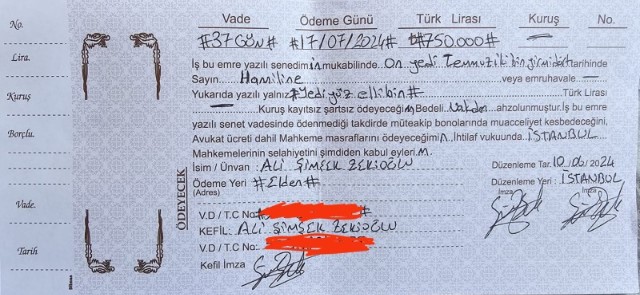 No.
Lira.
Kuruş
Borçlu.
Vade.
Tarih
Vade Ödeme Günü Türk Lirası Kuruş No.
#37GÜN# #17/07/2024# ₺#750.000# —
İş bu emre yazılı senedimin mukabilinde On yedi Temmuz iki bin yirmi dört tarihinde
Sayın Hamiline veya emruhavale —
Yukarıda yazılı yalnız #Yedi yüz elli bin# Türk Lirası
— Kuruş kayıtsız şartsız ödeyeceğim Bedeli Nakden ahzolunmuştur. İş bu emre
yazılı senet vadesinde ödenmediği takdirde müteakip bonolarında muacceliyet kesbedeceğini,
Avukat ücreti dahil Mahkeme masraflarını ödeyeceğimi, İhtilaf vukuunda İSTANBUL
Mahkemelerinin selahiyetini şimdiden kabul eylerim.
ÖDEYECEK
İsim / Ünvan : ALİ ŞİMŞEK ZEKİOĞLU
Düzenleme Tar. 10/06/2024
Ödeme Yeri : #Elden#
(Adres)
Düzenleme Yeri : İSTANBUL
İmza İmza
V.D / T.C No: # #
KEFİL: ALİ ŞİMŞEK ZEKİOĞLU
V.D / T.C No:
Kefil İmza